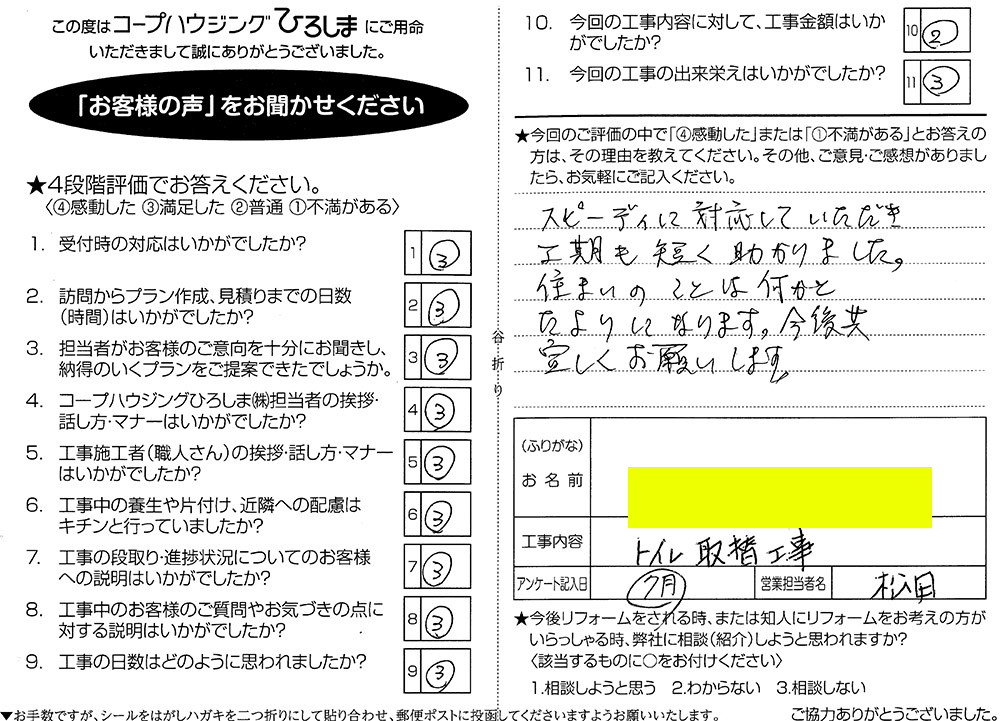 この度はコープハウジングひろしまにご用命
いただきまして誠にありがとうございました。
「お客様の声」をお聞かせください
★4段階評価でお答えください。
〈④感動した ③満足した ②普通 ①不満がある〉
1. 受付時の対応はいかがでしたか?
1 ③
2. 訪問からプラン作成、見積りまでの日数
(時間)はいかがでしたか?
2 ③
3. 担当者がお客様のご意向を十分にお聞きし、
納得のいくプランをご提案できたでしょうか。
3 ③
4. コープハウジングひろしま㈱担当者の挨拶・
話し方・マナーはいかがでしたか?
4 ③
5. 工事施工者(職人さん)の挨拶・話し方・マナー
はいかがでしたか?
5 ③
6. 工事中の養生や片付け、近隣への配慮は
キチンと行っていましたか?
6 ③
7. 工事の段取り・進捗状況についてのお客様
への説明はいかがでしたか?
7 ③
8. 工事中のお客様のご質問やお気づきの点に
対する説明はいかがでしたか?
8 ③
9. 工事の日数はどのように思われましたか?
9 ③
▼お手数ですが、シールをはがしハガキを二つ折りにして貼り合わせ、郵便ポストに投函してくださいますようお願いいたします。
谷折り
10. 今回の工事内容に対して、工事金額はいか
がでしたか?
10 ②
11. 今回の工事の出来栄えはいかがでしたか?
11 ③
★今回のご評価の中で「④感動した」または「①不満がある」とお答えの
方は、その理由を教えてください。その他、ご意見・ご感想がありまし
たら、お気軽にご記入ください。
スピーディに対応していただき
工期も短く助かりました。
住まいのことは何かと
たよりになります。今後共
宜しくお願いします。
(ふりがな)
お名前
工事内容 トイレ取替工事
アンケート記入日 7月 営業担当者名 松田
★今後リフォームをされる時、または知人にリフォームをお考えの方が
いらっしゃる時、弊社に相談(紹介)しようと思われますか?
〈該当するものに○をお付けください〉
1.相談しようと思う 2.わからない 3.相談しない
ご協力ありがとうございました。